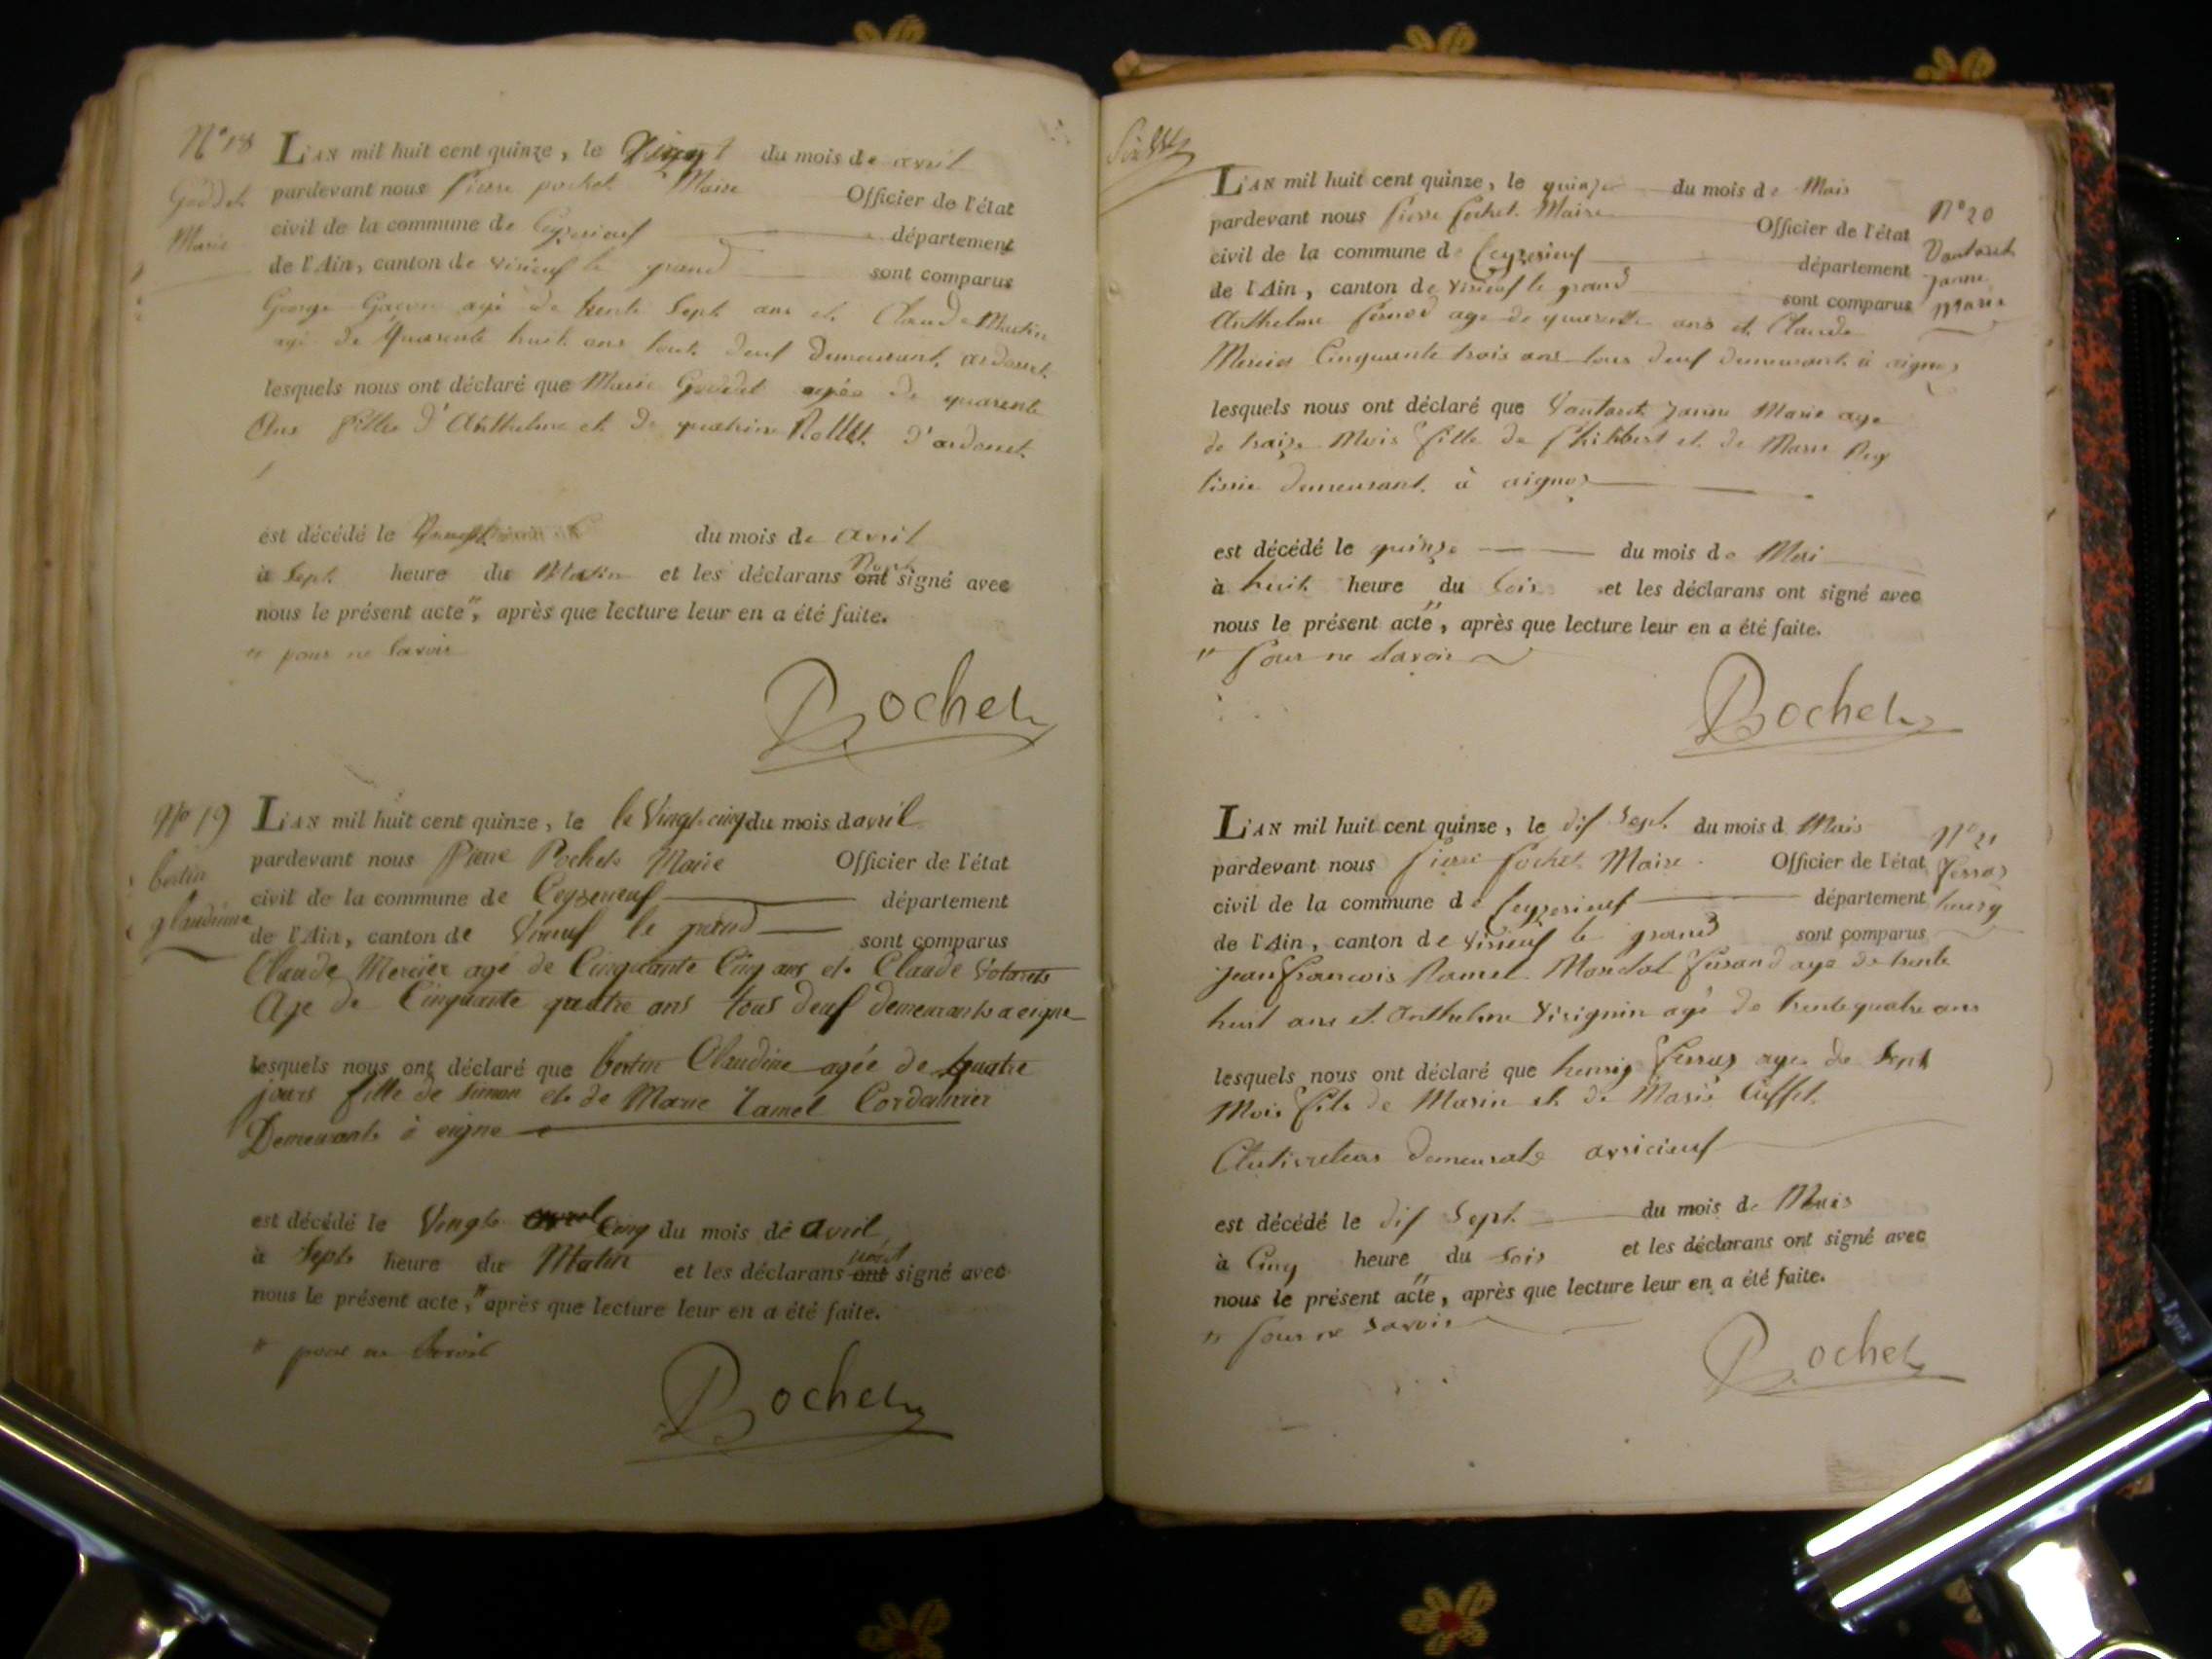 N° 18
L'AN mil huit cent quinze, le vingt du mois de avril
Goddet
pardevant nous pierre pochet Maire Officier de l'état
Marie
civil de la commune de Ceyzerieuf département
de l'Ain, canton de virieuf le grand sont comparus
George Gacon agé de trente Sept ans et Claude Martin
agé de Quarente huit ans tout deuf Demeurant ardonet
lesquels nous ont déclaré que Marie Goddet agée de quarente
Ans fille d'Anthelme et de Rollet d'ardonet
est décédé le du mois de avril
à Sept heure du Matin et les déclarans ont nont signé avec
nous le présent acte", après que lecture leur en a été faite.
" pour ne Savoir
Pochet
No 19
L'AN mil huit cent quinze, le le Vingt cinq du mois d avril
bertin
pardevant nous Pierre Pochet Maire Officier de l'état
glaudinne
civil de la commune de Ceyzerieuf département
de l'Ain, canton de Virieuf le grand sont comparus
Claude Mercier agé de Cinquante Cinq ans et Claude
Age de Cinquante quatre ans tous deuf demeurants a eigne
lesquels nous ont déclaré que bertin Claudine agée de quatre
jours fille de Simon et de Marie Tamel Cordannier
Demeurants à eigne
est décédé le Vingt Cinq du mois de avril
à Sept heure du Matin et les déclarans ont nont signé avec
nous le présent acte," après que lecture leur en a été faite.
" pour ne Savoir
Pochet
L'AN mil huit cent quinze, le quinze du mois de Mais
N° 20
pardevant nous Pierre Pochet Maire Officier de l'état
Vantaret
civil de la commune de Ceyzerieuf département
Janne
de l'Ain, canton de virieuf le grand sont comparus
Marie
Anthelme age de quarente ans et Claude
Mercier Cinquante trois ans tous deuf demeurant à aignes
lesquels nous ont déclaré que Vantaret Janne Marie age
de traize Mois fille de Philibert et de Marie Pey
tissie demeurant à aignes
est décédé le quinze du mois de Mai
à huit heure du Soir et les déclarans ont signé avec
nous le présent acte", après que lecture leur en a été faite.
" Pour ne Savoir
Pochet
L'AN mil huit cent quinze, le dif Sept du mois d Mais
N° 21
pardevant nous Pierre Pochet Maire Officier de l'état
ferras
civil de la commune de Ceyzerieuf département
henry
de l'Ain, canton de virieuf le grand sont comparus
jean françois Ramel Marechal ferrand age de trente
huit ans et Anthelme Virignin agé de trente quatre ans
lesquels nous ont déclaré que henrig ferras age de Sept
Mois fils de Marin et de Marie Cuffet
Cluticuteur demeurate avricieuf
est décédé le dif Sept du mois de Mais
à Cinq heure du Soir et les déclarans ont signé avec
nous le présent acte", après que lecture leur en a été faite.
" Pour ne Savoir
Pochet